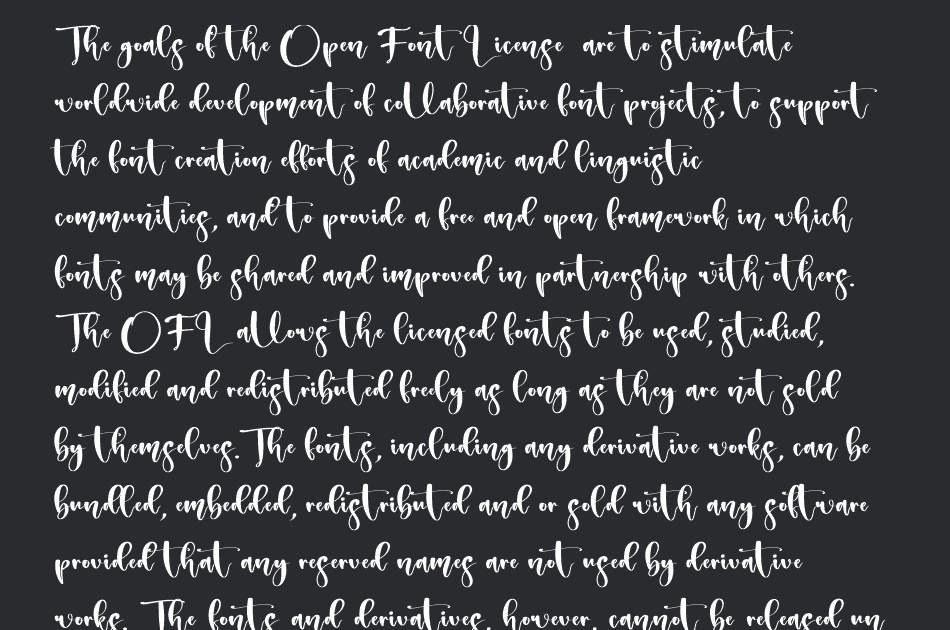 The goals of the Open Font License are to stimulate
worldwide development of collaborative font projects, to support
the font creation efforts of academic and linguistic
communities, and to provide a free and open framework in which
fonts may be shared and improved in partnership with others.
The OFL allows the licensed fonts to be used, studied,
modified and redistributed freely as long as they are not sold
by themselves. The fonts, including any derivative works, can be
bundled, embedded, redistributed and or sold with any software
provided that any reserved names are not used by derivative
works. The fonts and derivatives, however, cannot be released un